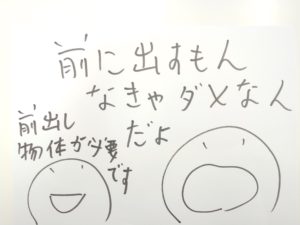 前に出すもん
なきゃダメなん
だよ
前出し
物体が必要
です